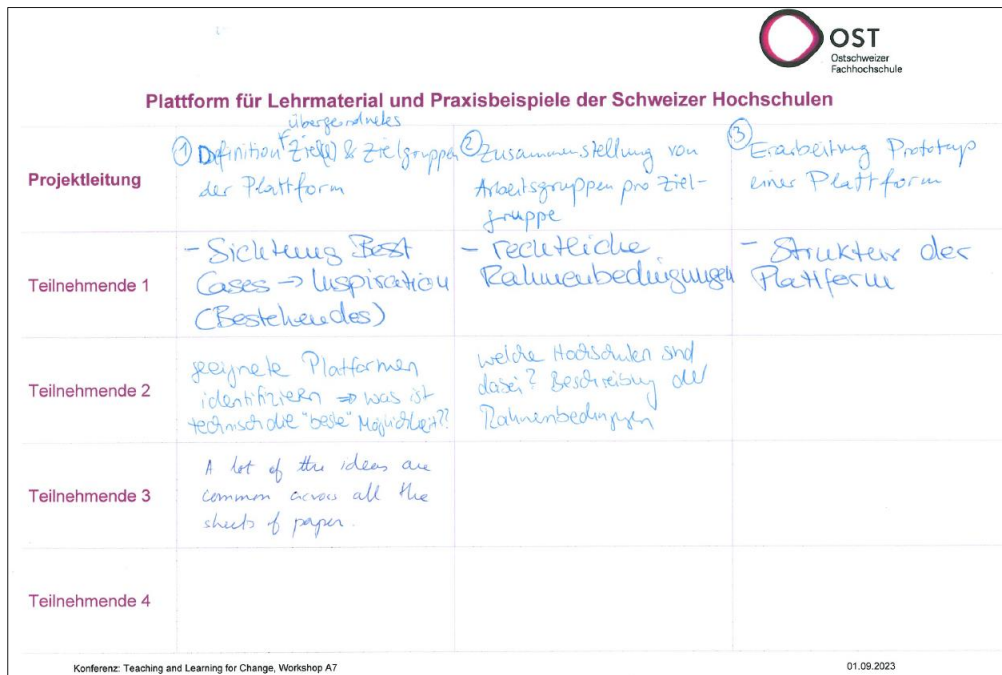 OST
Ostschweizer
Fachhochschule
Plattform für Lehrmaterial und Praxisbeispiele der Schweizer Hochschulen
Projektleitung
übergeordnetes
① Definition Ziel(e) & Zielgruppen
der Plattform
② Zusammenstellung von
Arbeitsgruppen pro Ziel-
gruppe
③ Erarbeitung Prototyp
einer Plattform
Teilnehmende 1
- Sichtung Best
Cases → Inspiration
(Bestehendes)
- rechtliche
Rahmenbedingungen
- Struktur der
Plattform
Teilnehmende 2
geeignete Platformen
identifizieren ⇒ was ist
technisch die "beste" Möglichkeit??
welche Hochschulen sind
dabei? Beschreibung der
Rahmenbedingungen
Teilnehmende 3
A lot of the ideas are
common across all the
sheets of paper.
Teilnehmende 4
Konferenz: Teaching and Learning for Change, Workshop A7
01.09.2023